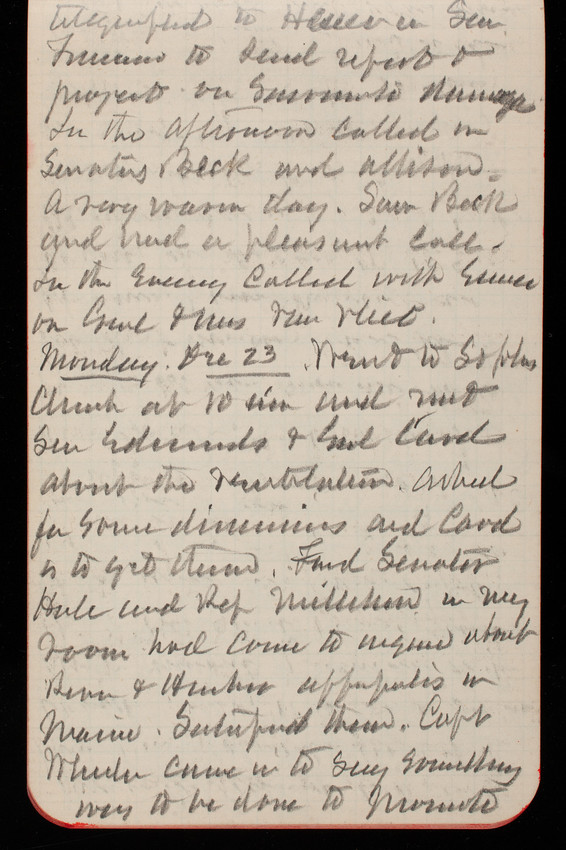 telegraphed to Heuer in San
Francisco to send report &
project on Sacramento
In the afternoon called on
Senators Beck and Allison.
A very warm day. Saw Beck
and had a pleasant call.
In the Evening called with Emma
on Genl & Mrs Van Vliet.
Monday. Dec 23. Went to St Johns
Church at 10 am and met
Sen Edmunds & Genl Card
about the ventilation. Asked
for some dimensions and Card
is to get them. Found Senator
Hale and Rep Milliken in my
room had come to inquire about
River & Harbor in
Maine. Satisfied them. Capt
Wheeler came in to say something
was to be done to promote